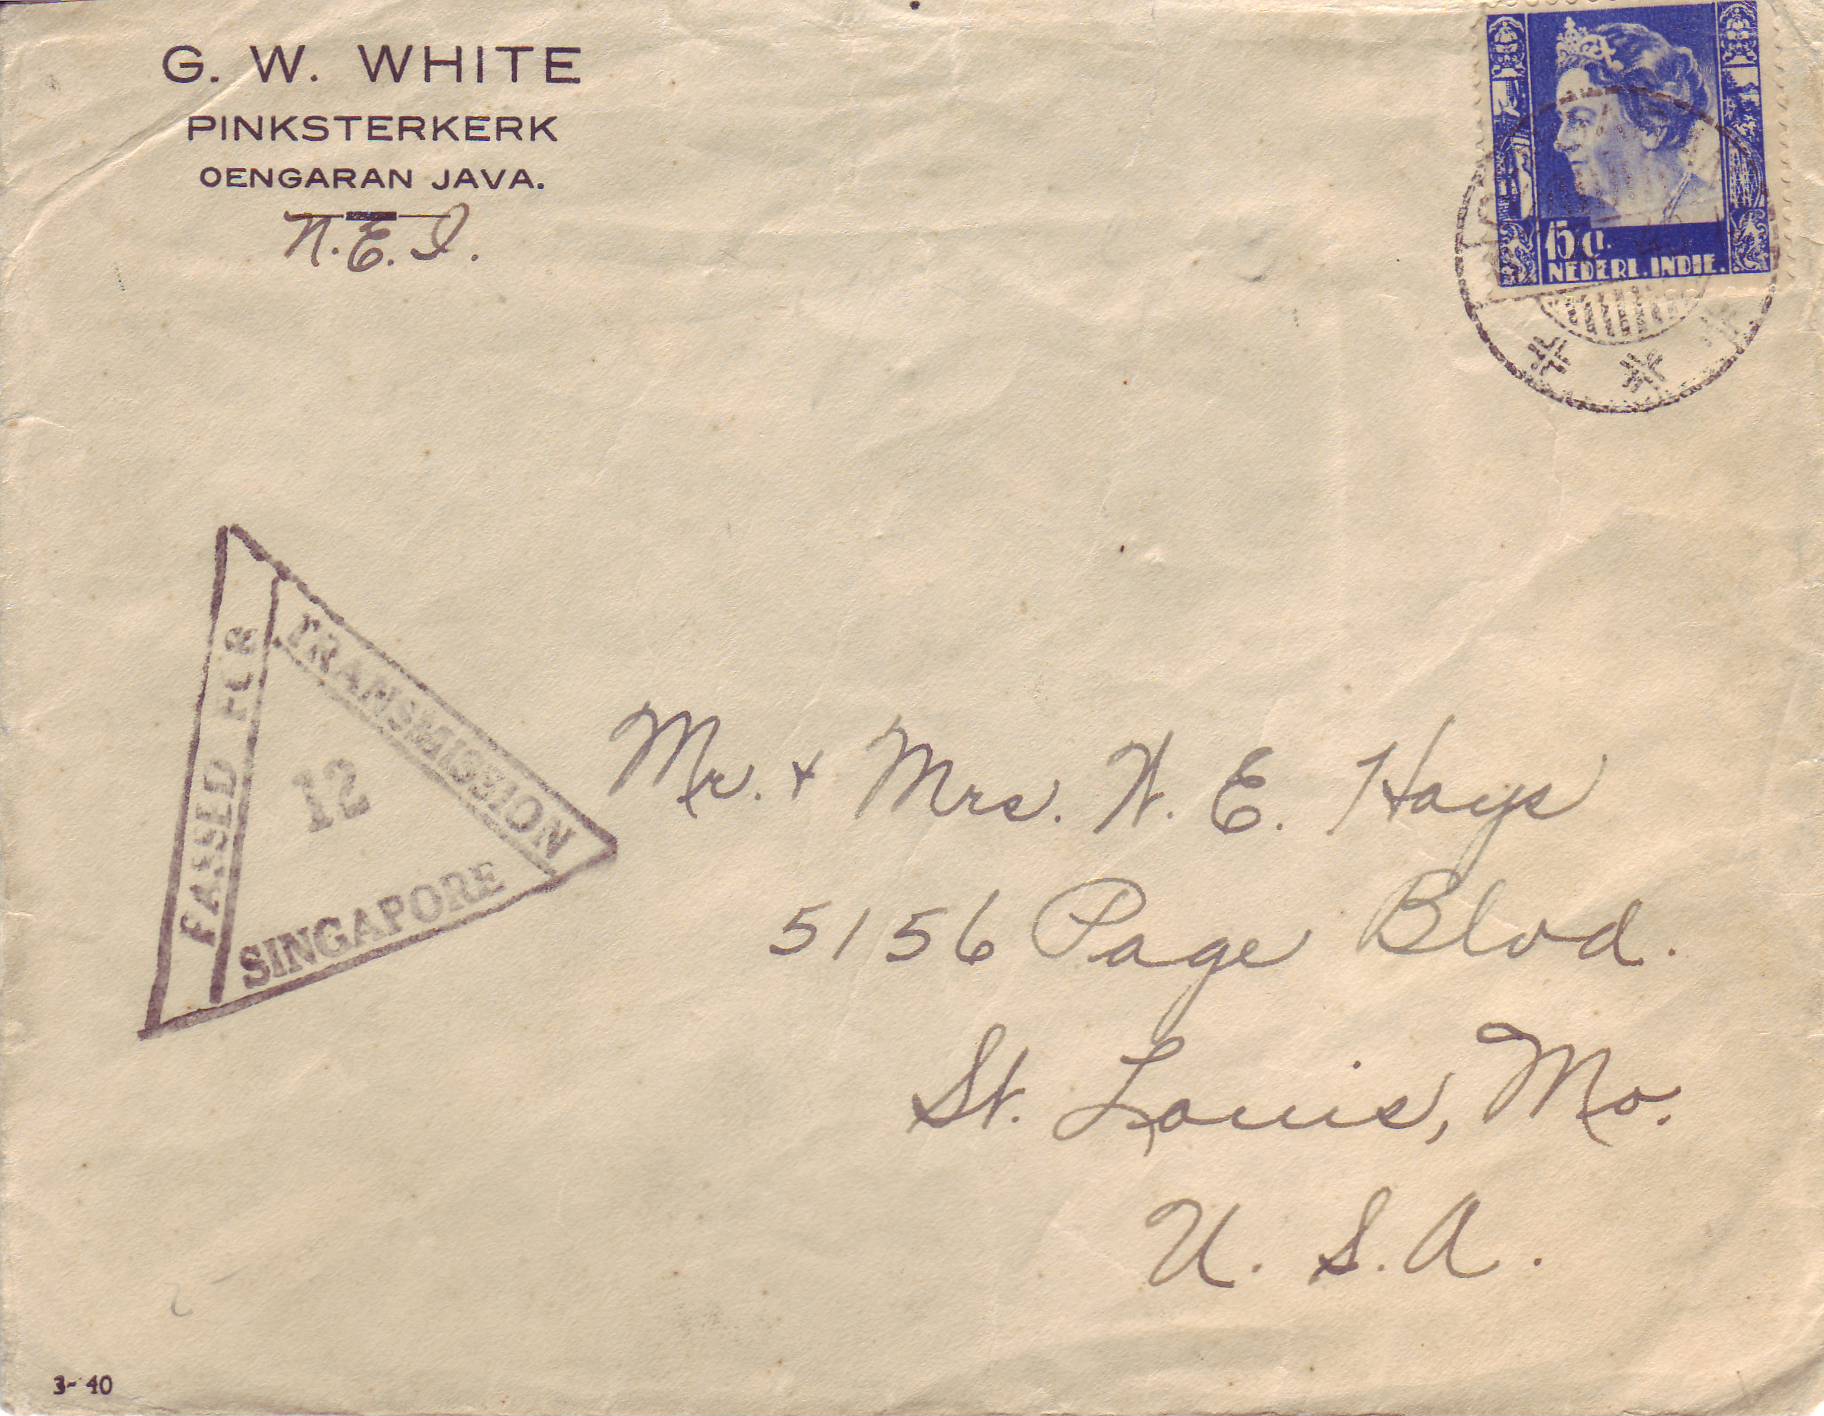 G. W. WHITE
PINKSTERKERK
OENGARAN JAVA.
N.E.I.
15 ct.
NEDERL. INDIE.
PASSED FOR
TRANSMISSION
12
SINGAPORE
Mr. + Mrs. W. E. Hays
5156 Page Blvd.
St. Louis, Mo.
U. S. A.
3-40